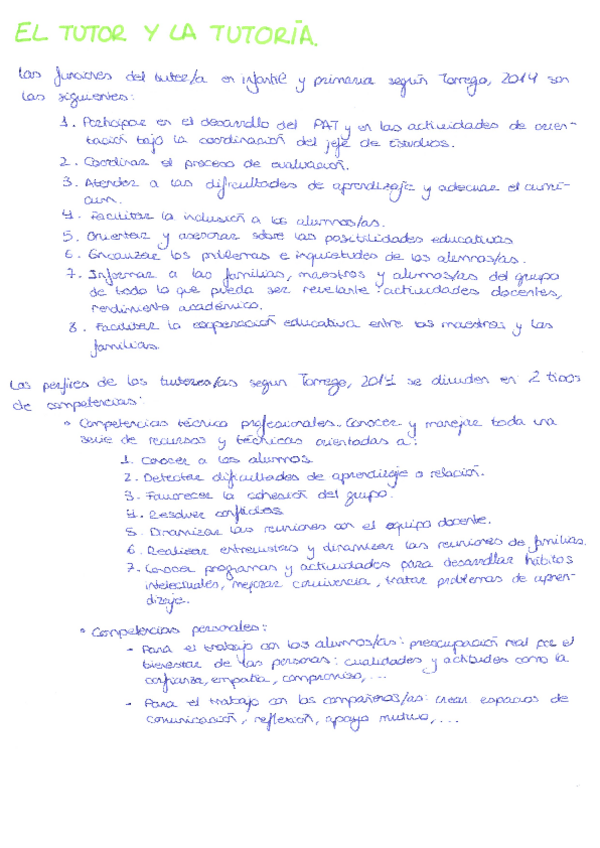 EL TUTOR Y LA TUTORÍA.
Las funciones del tutor/a en infantil y primaria según Torrego, 2014 son
las siguientes:
1. Participar en el desarrollo del PAT y en las actividades de orien-
tación bajo la coordinación del jefe de Estudios.
2. Coordinar el proceso de evaluación.
3. Atender a las dificultades de aprendizaje y adecuar el currí-
culum.
4. Facilitar la inclusión a los alumnos/as.
5. Orientar y asesorar sobre las posibilidades educativas
6. Encauzar los problemas e inquietudes de los alumnos/as.
7. Informar a las familias, maestros y alumnos/as del grupo
de todo lo que pueda ser revelante: actividades docentes,
rendimiento académico.
8. Facilitar la cooperación educativa entre los maestros y las
familias.
Los perfires de los tutores/as segun Torrego, 2014 se dividen en 2 tipos
de competencias:
• Competencias técnico profesionales. Conocer y manejar toda una
serie de recursos y técnicas orientadas a:
1. Conocer a los alumnos
2. Detectar dificultades de aprendizaje o relación.
3. Favorecer la cohesión del grupo.
4. Resolver conflictos
5. Dinamizar las reuniones con el equipo docente.
6. Realizar entrevistas y dinamizar las reuniones de familias.
7. Conocer programas y actividades para desarrollar hábitos
intelectuales, mejorar convivencia, tratar problemas de apren-
dizaje.
• Competencias personales:
- Para el trabajo con los alumnos/as: preocupación real por el
bienestar de las personas: cualidades y actitudes como la
confianza, empatía, compromiso, ...
- Para el trabajo con los compañeros/as: crear espacios de
comunicación, reflexión, apoyo mutuo, ...